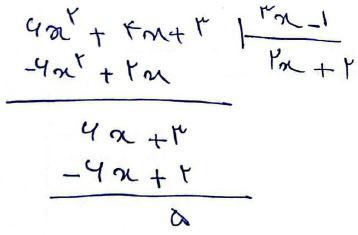 ۶x^۲ + ۴x + ۳ | ۳x - ۱
-۶x^۲ + ۲x | ۲x + ۲
۶x + ۳
-۶x + ۲
۵